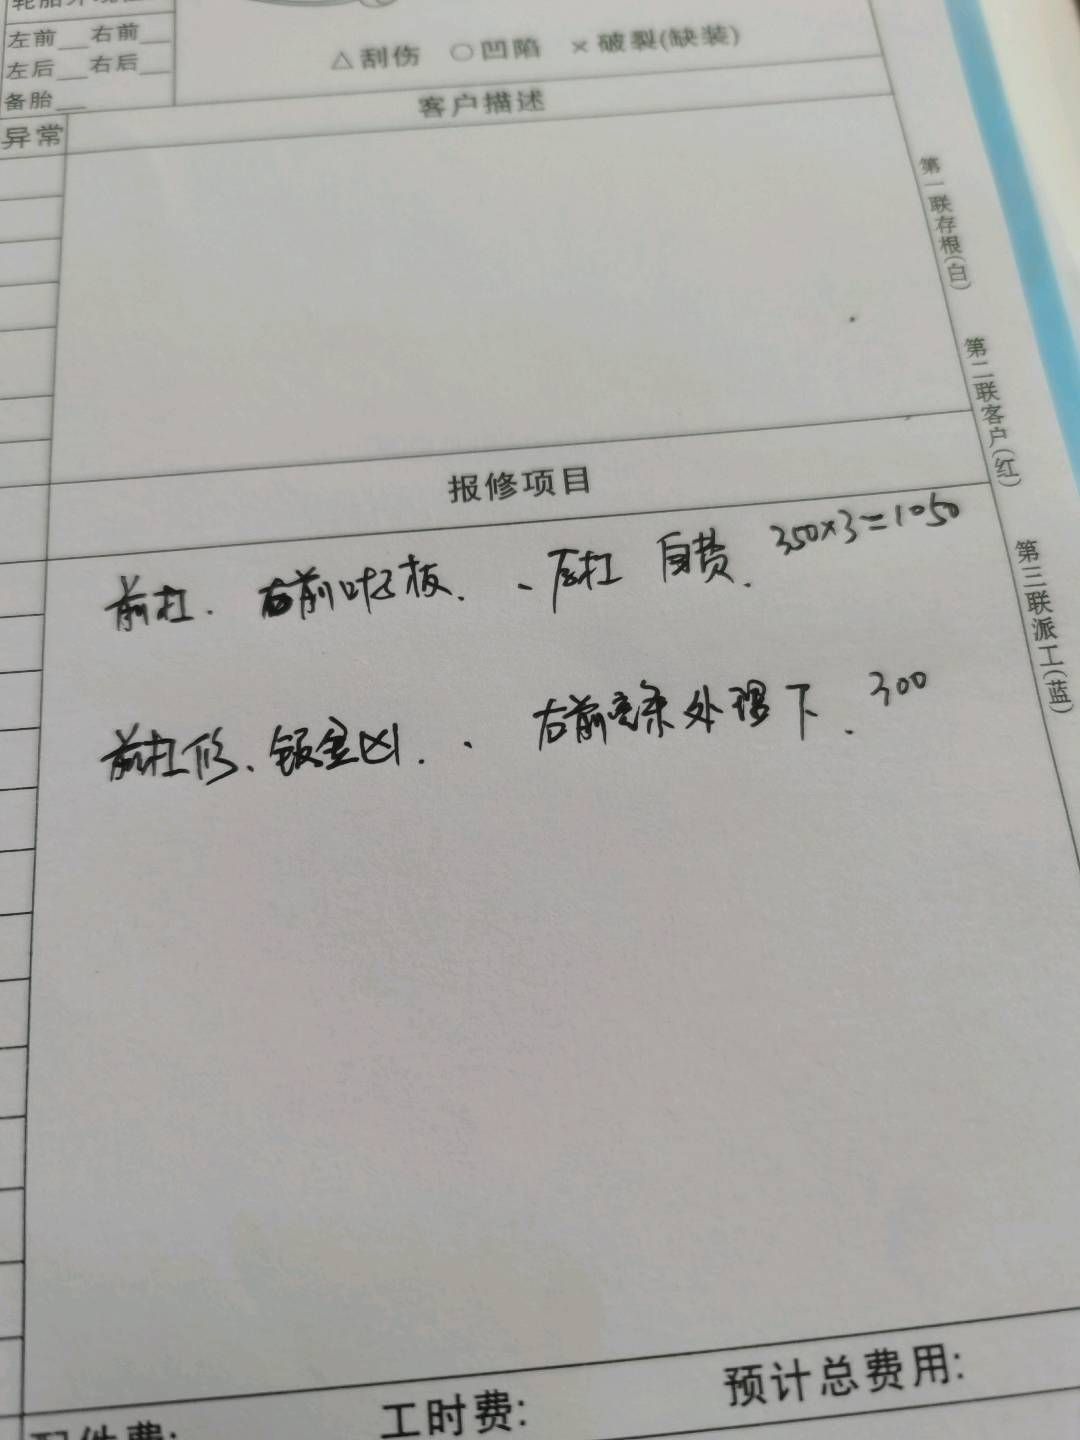 左前__右前__
左后__右后__
备胎__
△刮伤 ○凹陷 ×破裂(缺装)
异常
客户描述
报修项目
前杠. 右前叶子板. 、后杠 自费. 350×3=1050
前杠修、钣金凶. 、右前亮条处理下. 300
配件费:
工时费:
预计总费用:
第一联存根(白)
第二联客户(红)
第三联派工(蓝)